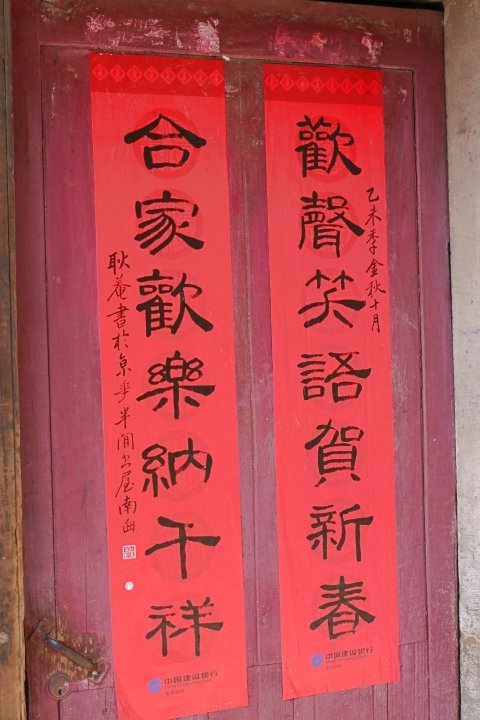 歡聲笑語賀新春
乙未季金秋十月
中国建设银行
合家歡樂納千祥
耿菴書於京華半間書屋南窗
中国建设银行